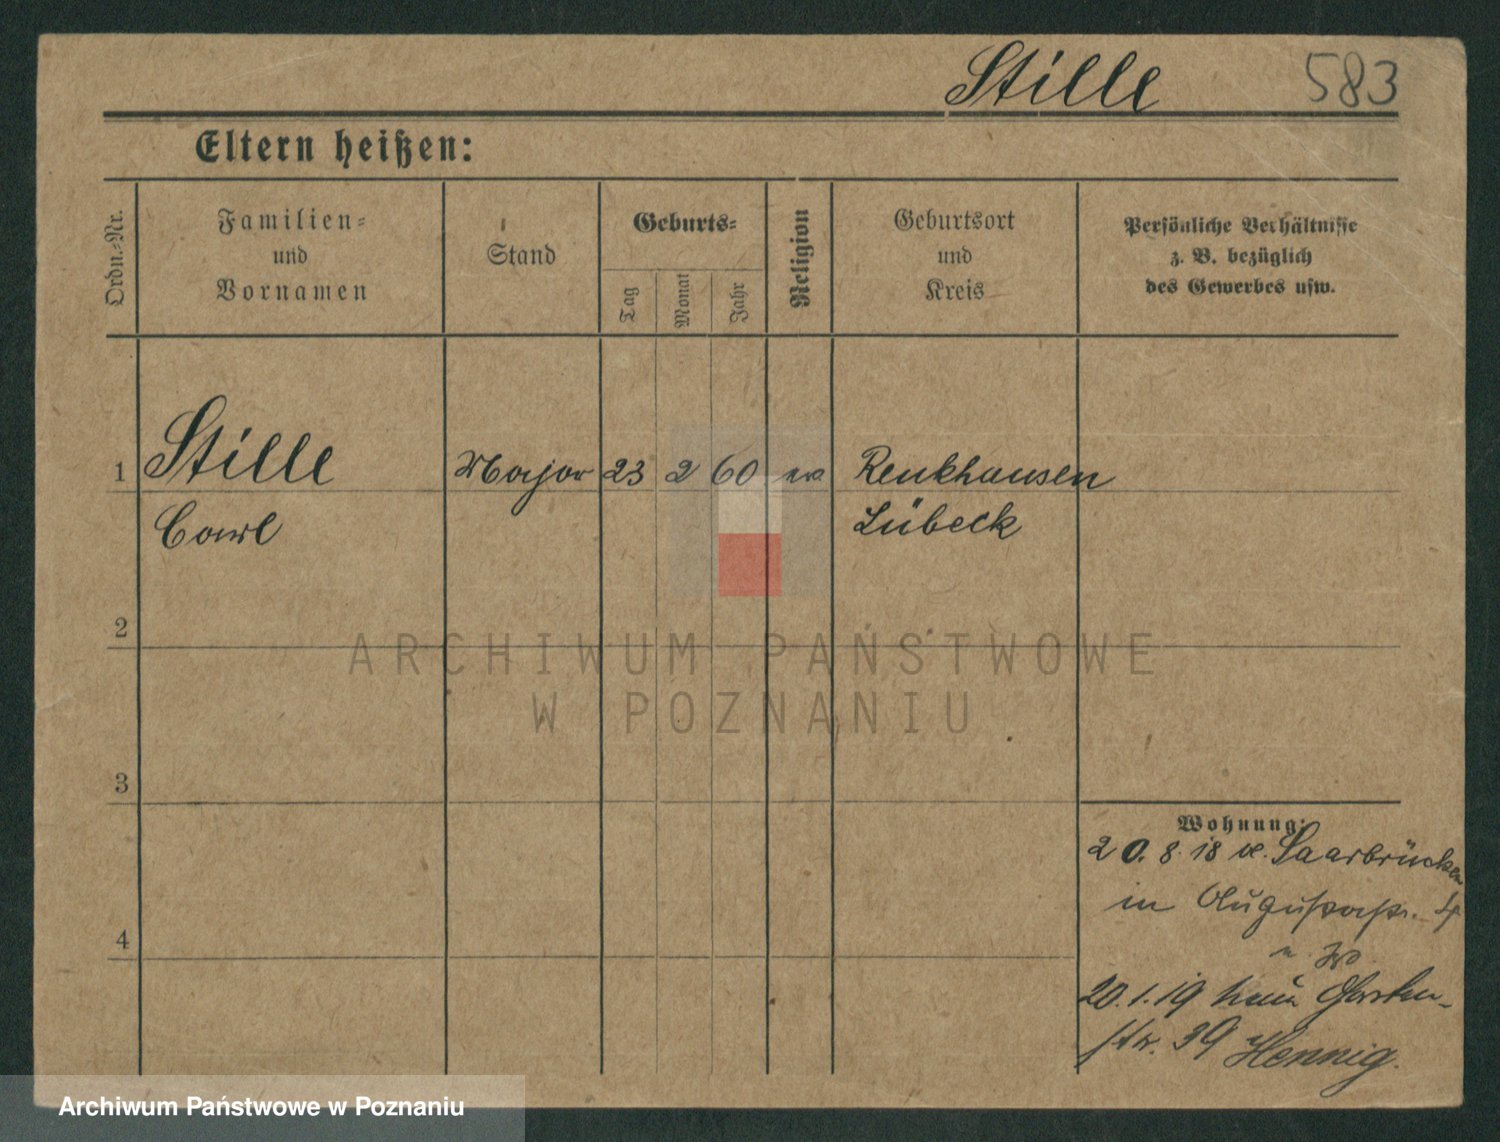 Stille 583
Eltern heißen:
Ordn.-Nr.
Familien-
und
Vornamen
Stand
Geburts-
Tag
Monat
Jahr
Religion
Geburtsort
und
Kreis
Persönliche Verhältnisse
z. B. bezüglich
des Gewerbes usw.
1 Stille Major 23 2 60 ev. Renkhausen
Carl Lübeck
2
ARCHIWUM PAŃSTWOWE
W POZNANIU
3
Wohnung:
20. 8. 18 Saarbrücken
in Augustastr. 4
4
20. 1. 19
str. 39 Hennig.
Archiwum Państwowe w Poznaniu